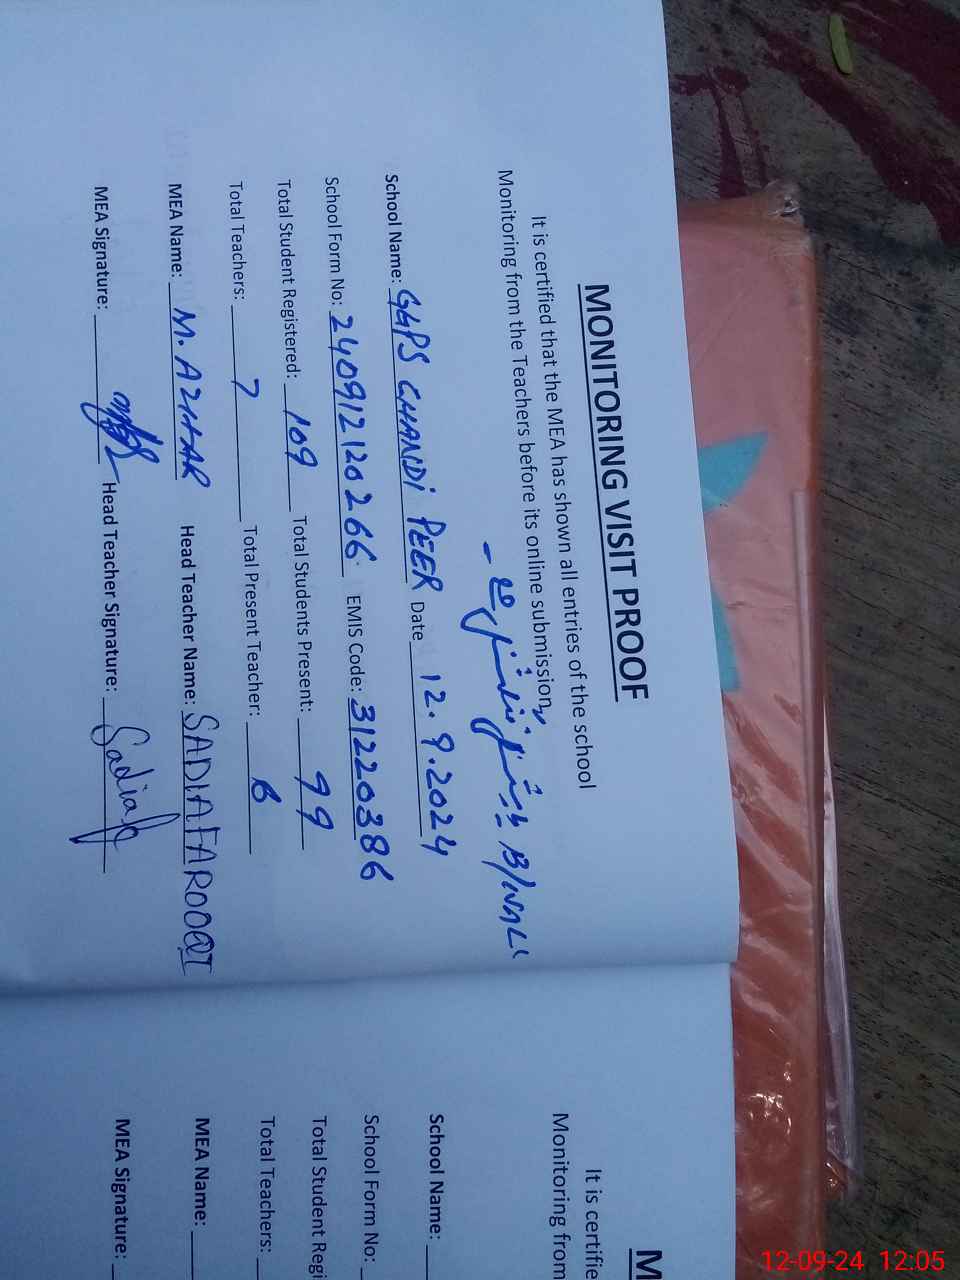 MONITORING VISIT PROOF
It is certified that the MEA has shown all entries of the school
Monitoring from the Teachers before its online submission,
B/WALL
School Name: GGPS CHANDI PEER Date 12.9.2024
School Form No: 240912120266 EMIS Code: 31220386
Total Student Registered: 109 Total Students Present: 99
Total Teachers: 7 Total Present Teacher: 6
MEA Name: M. AZHAR Head Teacher Name: SADIA FAROOQI
MEA Signature: Head Teacher Signature: Sadia
M
It is certifie
Monitoring from
School Name:
School Form No:
Total Student Regi
Total Teachers:
MEA Name:
MEA Signature:
12-09-24 12:05